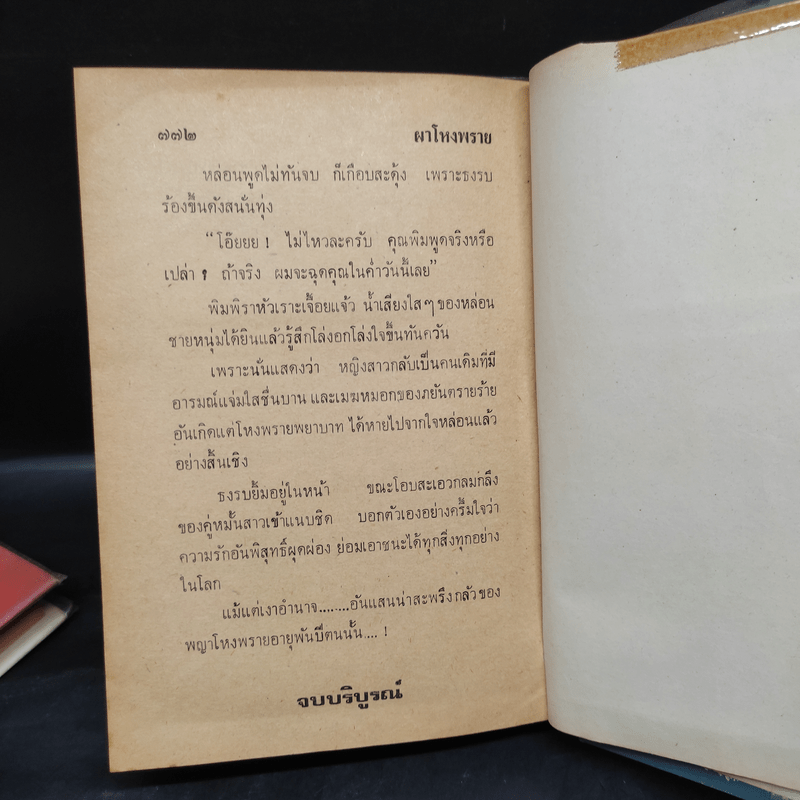 ๗๗๒ ผาโหงพราย
หล่อนพูดไม่ทันจบ ก็เกือบสะดุ้ง เพราะธงรบ
ร้องขึ้นดังสนั่นทุ่ง
“โอ๊ยยย ! ไม่ไหวละครับ คุณพิมพูดจริงหรือ
เปล่า ? ถ้าจริง ผมจะฉุดคุณในค่ำวันนี้เลย”
พิมพิราหัวเราะเจื้อยแจ้ว น้ำเสียงใสๆ ของหล่อน
ชายหนุ่มได้ยินแล้วรู้สึกโล่งอกโล่งใจขึ้นทันควัน
เพราะนั่นแสดงว่า หญิงสาวกลับเป็นคนเดิมที่มี
อารมณ์แจ่มใสชื่นบาน และเมฆหมอกของภยันตรายร้าย
อันเกิดแต่โหงพรายพยาบาท ได้หายไปจากใจหล่อนแล้ว
อย่างสิ้นเชิง
ธงรบยิ้มอยู่ในหน้า ขณะโอบสะเอวกลมกลึง
ของคู่หมั้นสาวเข้าแนบชิด บอกตัวเองอย่างครึ้มใจว่า
ความรักอันพิสุทธิ์ผุดผ่อง ย่อมเอาชนะได้ทุกสิ่งทุกอย่าง
ในโลก
แม้แต่เงาอำนาจ........อันแสนน่าสะพรึงกลัวของ
พญาโหงพรายอายุพันปีตนนั้น.... !
จบบริบูรณ์